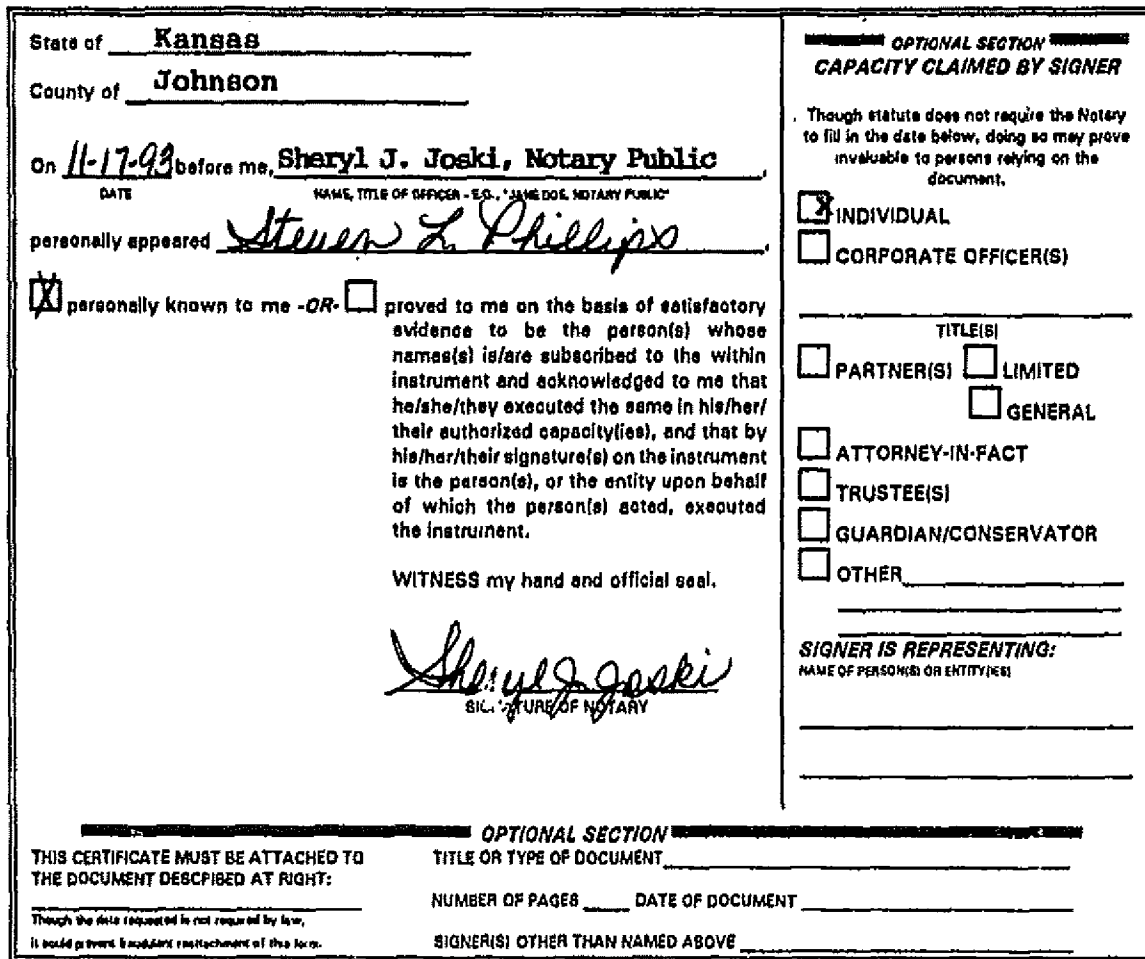 State of Kansas
County of Johnson
On 11-17-93 before me, Sheryl J. Joski, Notary Public
DATE NAME, TITLE OF OFFICER - E.G., "JANE DOE, NOTARY PUBLIC"
personally appeared Steven L Phillips,
X personally known to me -OR- proved to me on the basis of satisfactory
evidence to be the person(s) whose
names(s) is/are subscribed to the within
instrument and acknowledged to me that
he/she/they executed the same in his/her/
their authorized capacity(ies), and that by
his/her/their signature(s) on the instrument
is the person(s), or the entity upon behalf
of which the person(s) acted, executed
the instrument.
WITNESS my hand and official seal.
Sheryl J. Joski
SIGNATURE OF NOTARY
OPTIONAL SECTION
CAPACITY CLAIMED BY SIGNER
Though statute does not require the Notary
to fill in the date below, doing so may prove
invaluable to persons relying on the
document.
X INDIVIDUAL
CORPORATE OFFICER(S)
TITLE(S)
PARTNER(S) LIMITED
GENERAL
ATTORNEY-IN-FACT
TRUSTEE(S)
GUARDIAN/CONSERVATOR
OTHER
SIGNER IS REPRESENTING:
NAME OF PERSON(S) OR ENTITY(IES)
OPTIONAL SECTION
THIS CERTIFICATE MUST BE ATTACHED TO
THE DOCUMENT DESCRIBED AT RIGHT:
Though the data requested is not required by law,
it could prevent fraudulent reattachment of this form.
TITLE OR TYPE OF DOCUMENT
NUMBER OF PAGES DATE OF DOCUMENT
SIGNER(S) OTHER THAN NAMED ABOVE